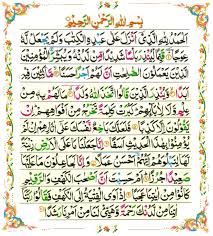 بِسْمِ اللهِ الرَّحْمٰنِ الرَّحِيْمِ
اَلْحَمْدُ لِلّٰهِ الَّذِيْٓ اَنْزَلَ عَلٰى عَبْدِهِ الْكِتٰبَ وَلَمْ يَجْعَلْ لَّهٗ
عِوَجًا قَيِّمًا لِّيُنْذِرَ بَاْسًا شَدِيْدًا مِّنْ لَّدُنْهُ وَيُبَشِّرَ الْمُؤْمِنِيْنَ
الَّذِيْنَ يَعْمَلُوْنَ الصّٰلِحٰتِ اَنَّ لَهُمْ اَجْرًا حَسَنًا مَّاكِثِيْنَ
فِيْهِ اَبَدًا وَّيُنْذِرَ الَّذِيْنَ قَالُوا اتَّخَذَ اللهُ وَلَدًا مَا لَهُمْ بِهٖ مِنْ
عِلْمٍ وَّلَا لِاٰبَآئِهِمْ كَبُرَتْ كَلِمَةً تَخْرُجُ مِنْ اَفْوَاهِهِمْ اِنْ
يَّقُوْلُوْنَ اِلَّا كَذِبًا فَلَعَلَّكَ بَاخِعٌ نَّفْسَكَ عَلٰٓى اٰثَارِهِمْ اِنْ لَّمْ
يُؤْمِنُوْا بِهٰذَا الْحَدِيْثِ اَسَفًا اِنَّا جَعَلْنَا مَا عَلَى الْاَرْضِ
زِيْنَةً لَّهَا لِنَبْلُوَهُمْ اَيُّهُمْ اَحْسَنُ عَمَلًا وَاِنَّا لَجٰعِلُوْنَ مَا عَلَيْهَا
صَعِيْدًا جُرُزًا اَمْ حَسِبْتَ اَنَّ اَصْحٰبَ الْكَهْفِ وَالرَّقِيْمِ كَانُوْا
مِنْ اٰيٰتِنَا عَجَبًا اِذْ اَوَى الْفِتْيَةُ اِلَى الْكَهْفِ فَقَالُوْا رَبَّنَآ
اٰتِنَا مِنْ لَّدُنْكَ رَحْمَةً وَّهَيِّئْ لَنَا مِنْ اَمْرِنَا رَشَدًا